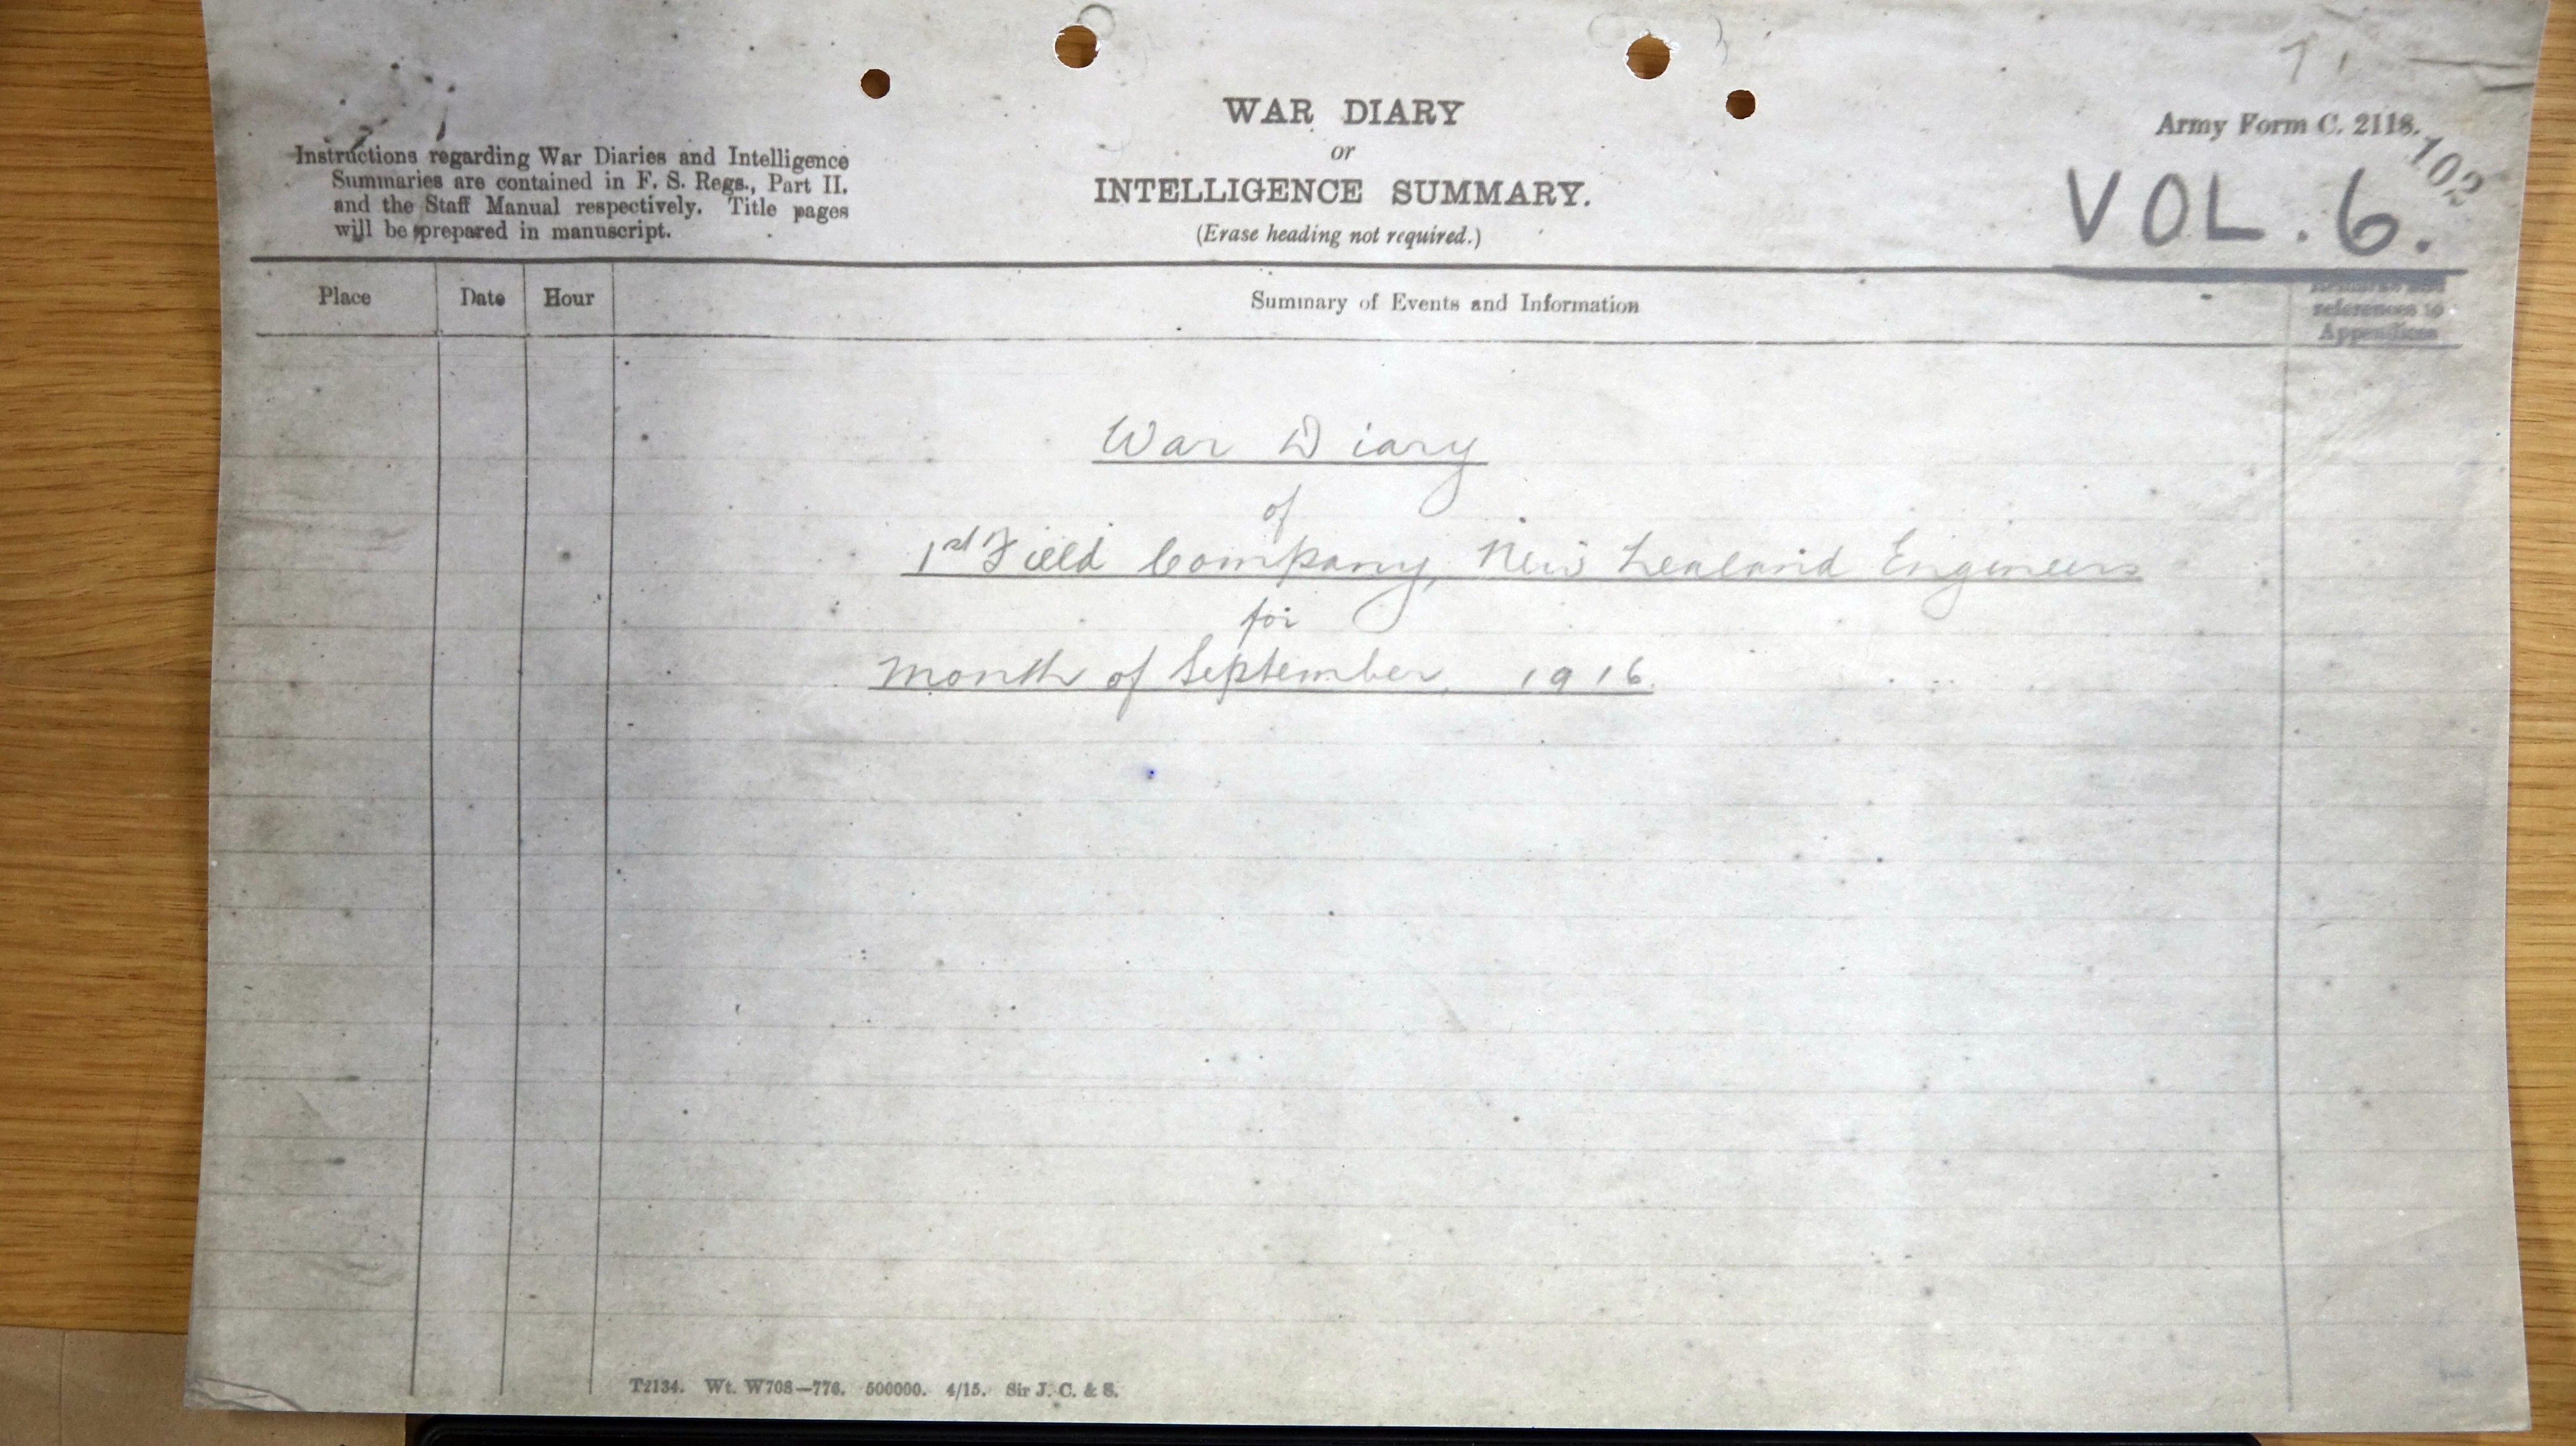 WAR DIARY
or
INTELLIGENCE SUMMARY.
(Erase heading not required.)
Instructions regarding War Diaries and Intelligence
Summaries are contained in F. S. Regs., Part II.
and the Staff Manual respectively. Title pages
will be prepared in manuscript.
Army Form C. 2118.
102
VOL. 6.
Place
Date
Hour
Summary of Events and Information
Remarks and
references to
Appendices
War Diary
of
1st Field Company, New Zealand Engineers
for
Month of September, 1916.
T2134. Wt. W708—776. 500000. 4/15. Sir J. C. & S.